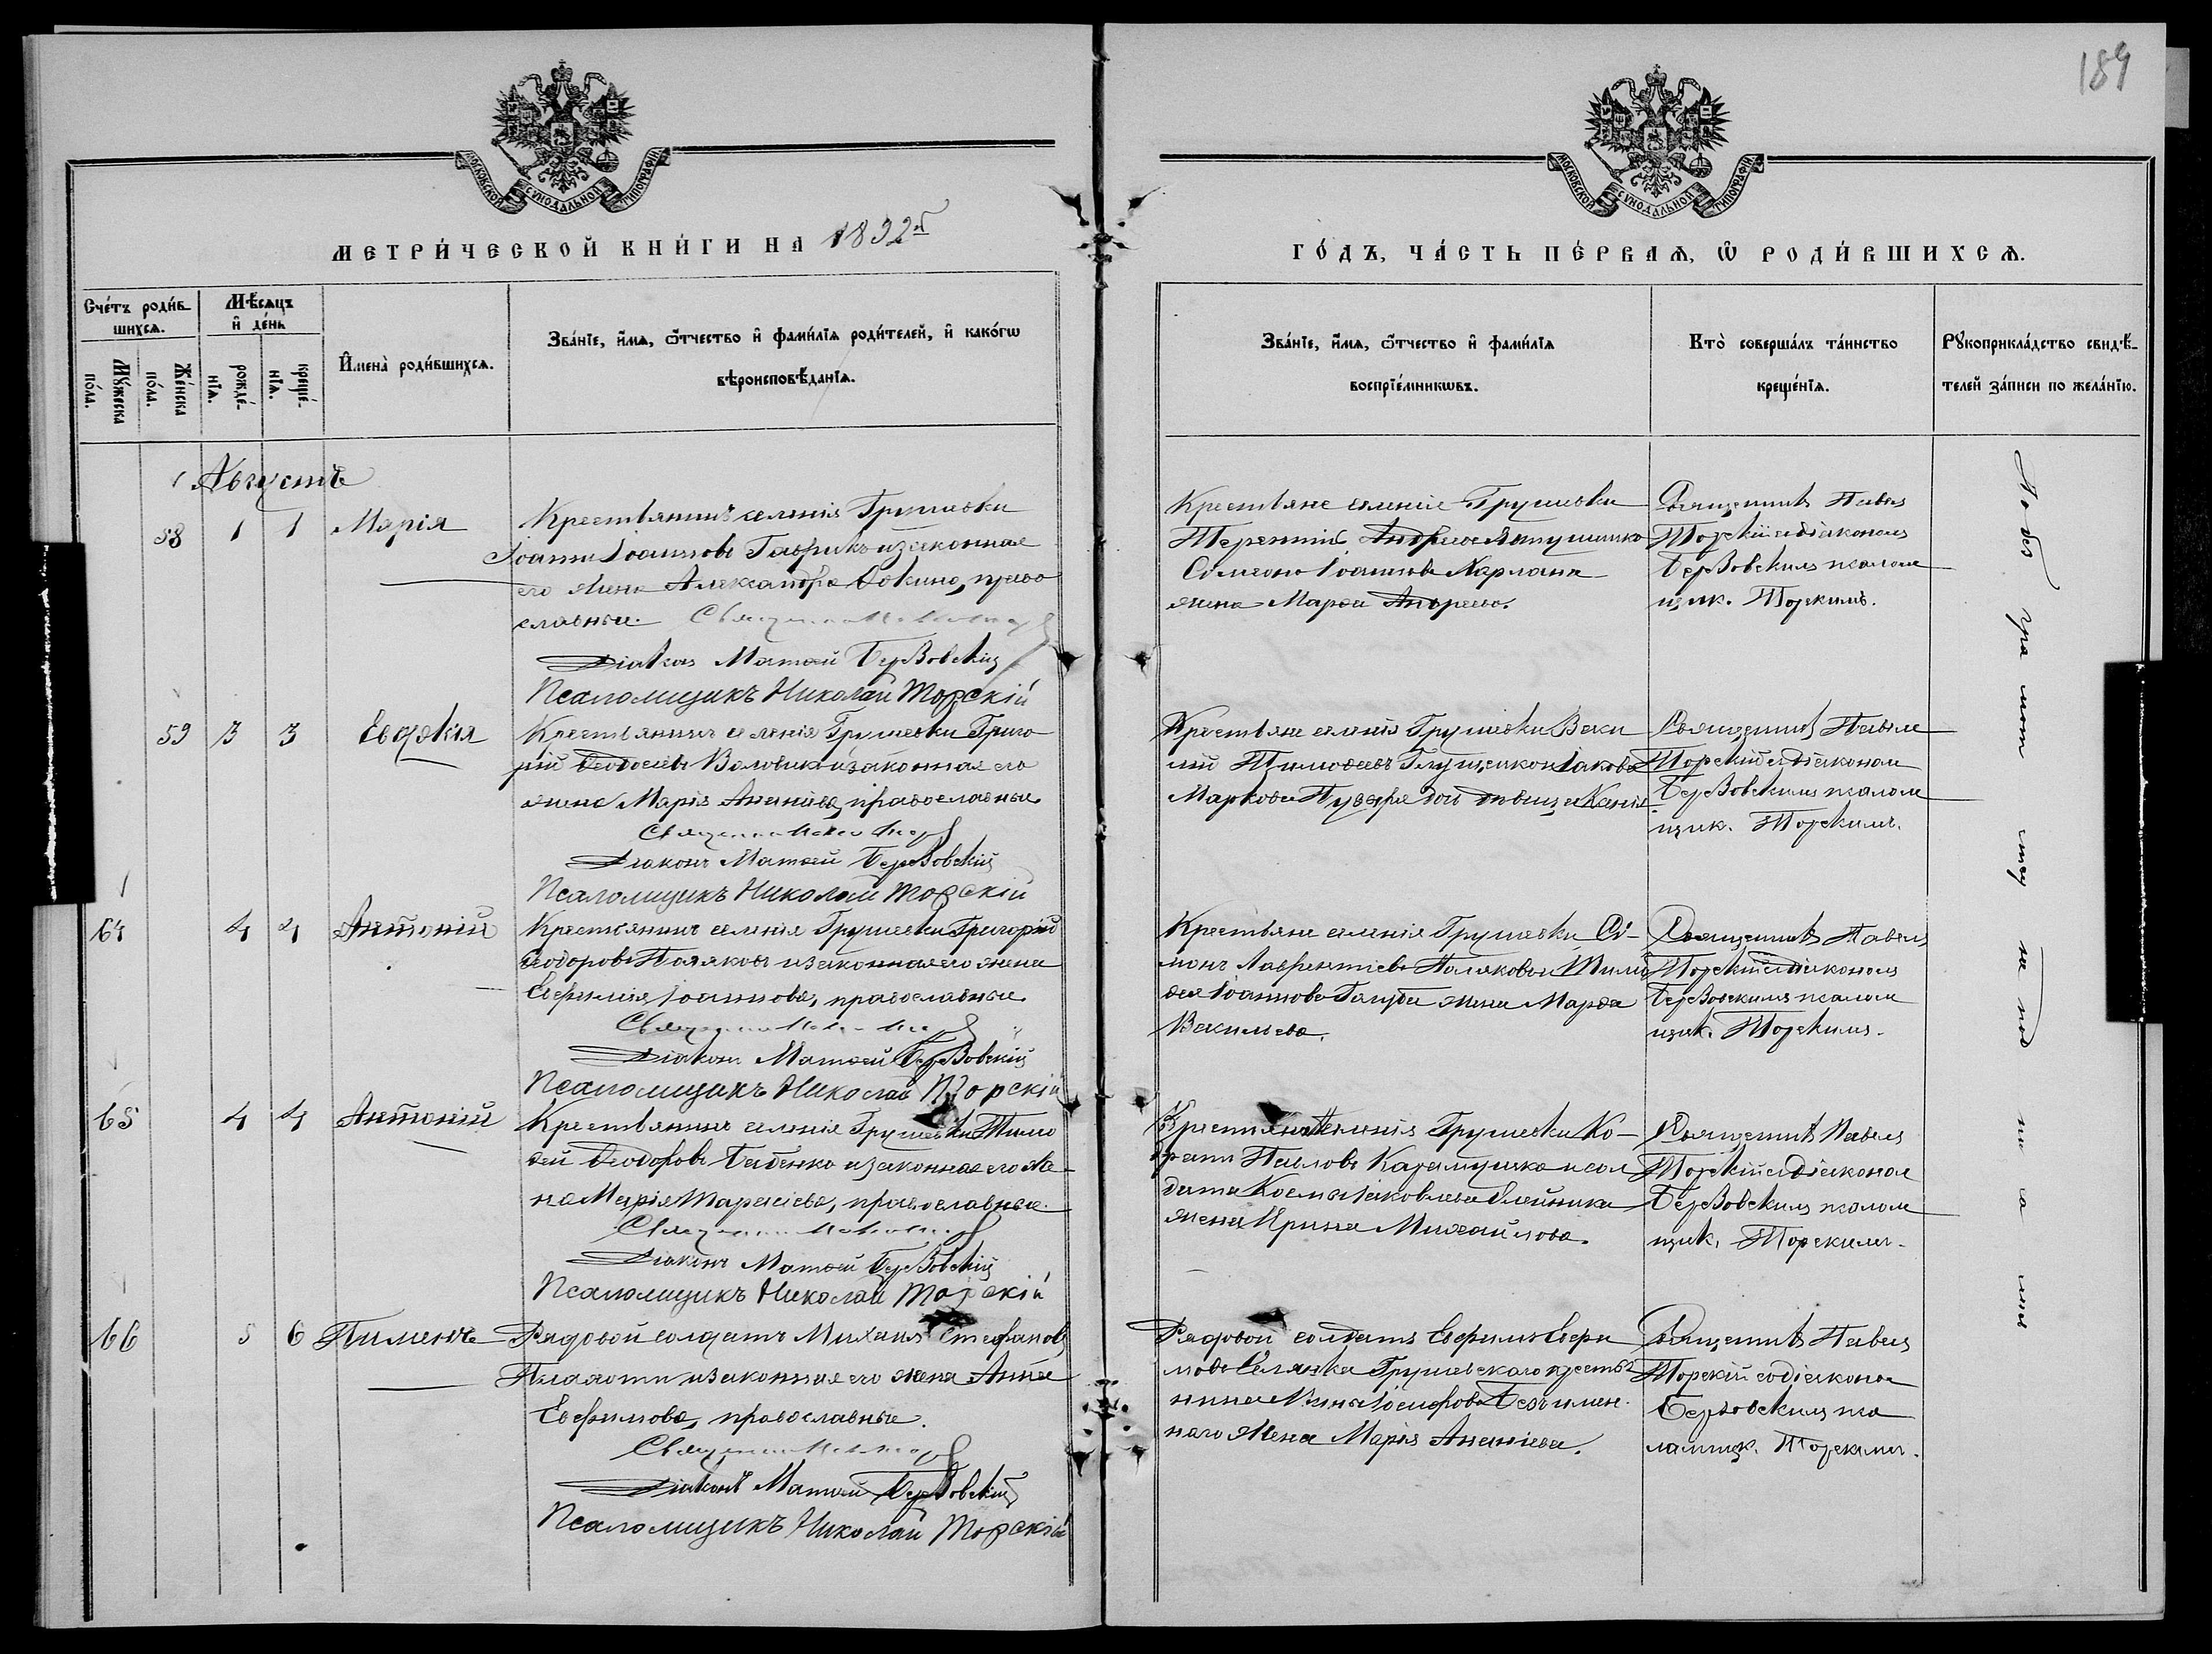 189
МОСКОВСКОЙ СУНОДАЛЬНОЙ ТИПОГРАФІИ
МОСКОВСКОЙ СУНОДАЛЬНОЙ ТИПОГРАФІИ
МЕТРИ́ЧЕСКОЙ КНИ́ГИ НА 1892й
ГО́ДЪ, ЧА́СТЬ ПЕ́РВАѦ, Ѡ РОДИ́ВШИХСѦ.
Сче́тъ роди́в-
шихсѧ.
Мѣ́сѧцъ
и де́нь
Мꙋ́жеска по́ла.
Же́нска по́ла.
рожде́-нїѧ.
креще́-нїѧ.
Имена̀ роди́вшихсѧ.
Зва́нїе, и́мѧ, ѻ́тчество и фами́лїѧ роди́телей, и како́гѡ
вѣроисповѣ́данїѧ.
Зва́нїе, и́мѧ, ѻ́тчество и фами́лїѧ
воспрїе́мникѡвъ.
Кто̀ соверша́лъ та́инство
креще́нїѧ.
Рꙋкоприкла́дство свидѣ́-
телей за́писи по жела́нїю.
Августъ
58 1 1 Марія
Крестьянинъ селенія Грушевки
Іоаннъ Іоанновъ Гаврикъ и законная
его жена Александра Фокина, право
славные. Священникъ
Діаконъ Матѳей Бервовскій
Псаломщикъ Николай Торскій
Крестьяне селенія Грушевки
Терентій Андреевъ
Симеона Іоаннова Карлана
жена Марѳа Андреева.
Священникъ Павелъ
Торскій съ діакономъ
Бервовскимъ псалом
щик. Торскимъ.
59 3 3 Евдокія
Крестьянинъ селенія Грушевки Григо
рій Ѳеодосіевъ Воловикъ и законная его
жена Марія Ананіева, православные.
Священникъ
Діаконъ Матѳей Бервовскій
Псаломщикъ Николай Торскій
Крестьяне селенія Грушевки Васи
лій Тимоѳеевъ Глущенко и Іакова
Маркова дочь дѣвица Ксенія.
Священникъ Павелъ
Торскій съ діакономъ
Бервовскимъ псалом
щик. Торскимъ.
64 4 4 Антоній
Крестьянинъ селенія Грушевки Григорій
Ѳеодоровъ Поляковъ и законная его жена
Евфимія Іоаннова, православные.
Священникъ
Діаконъ Матѳей Бервовскій
Псаломщикъ Николай Торскій
Крестьяне селенія Грушевки Си-
монъ Лаврентіевъ Поляковъ и Тимо
ѳея Іоаннова Голуба жена Марѳа
Васильева.
Священникъ Павелъ
Торскій съ діакономъ
Бервовскимъ псалом
щик. Торскимъ.
65 4 4 Антоній
Крестьянинъ селенія Грушевки Тимо
ѳей Ѳеодоровъ Бабенко и законная его же
на Марія Тарасіева, православные.
Священникъ
Діаконъ Матѳей Бервовскій
Псаломщикъ Николай Торскій
Крестьяне селенія Грушевки Ко-
дратъ Павловъ и сол
дата Космы Іаковлева Олейника
жена Ирина Михайлова.
Священникъ Павелъ
Торскій съ діакономъ
Бервовскимъ псалом
щик. Торскимъ.
66 5 6 Пименъ
Рядовой солдатъ Михаилъ Стефановъ
и законная его жена Анна
Евфимова, православные.
Священникъ
Діаконъ Матѳей Бервовскій
Псаломщикъ Николай Торскій
Рядовой солдатъ Евфимъ Евфи
мовъ Грушевскаго крестья
нина Іосифова Безъимен
наго жена Марія Ананіева.
Священникъ Павелъ
Торскій съ діакономъ
Бервовскимъ пса
ломщик. Торскимъ.
По безграмотству на подписали